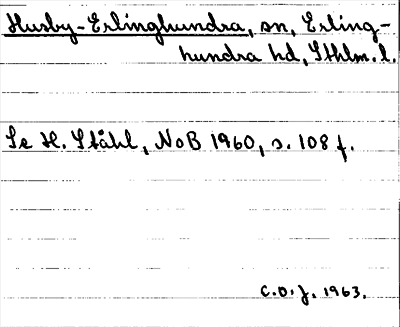 Husby-Erlinghundra, sn, Erling-
hundra hd, Sthlm. l.
Se H. Ståhl, NoB 1960, s. 108 f.
C.O.J. 1963.